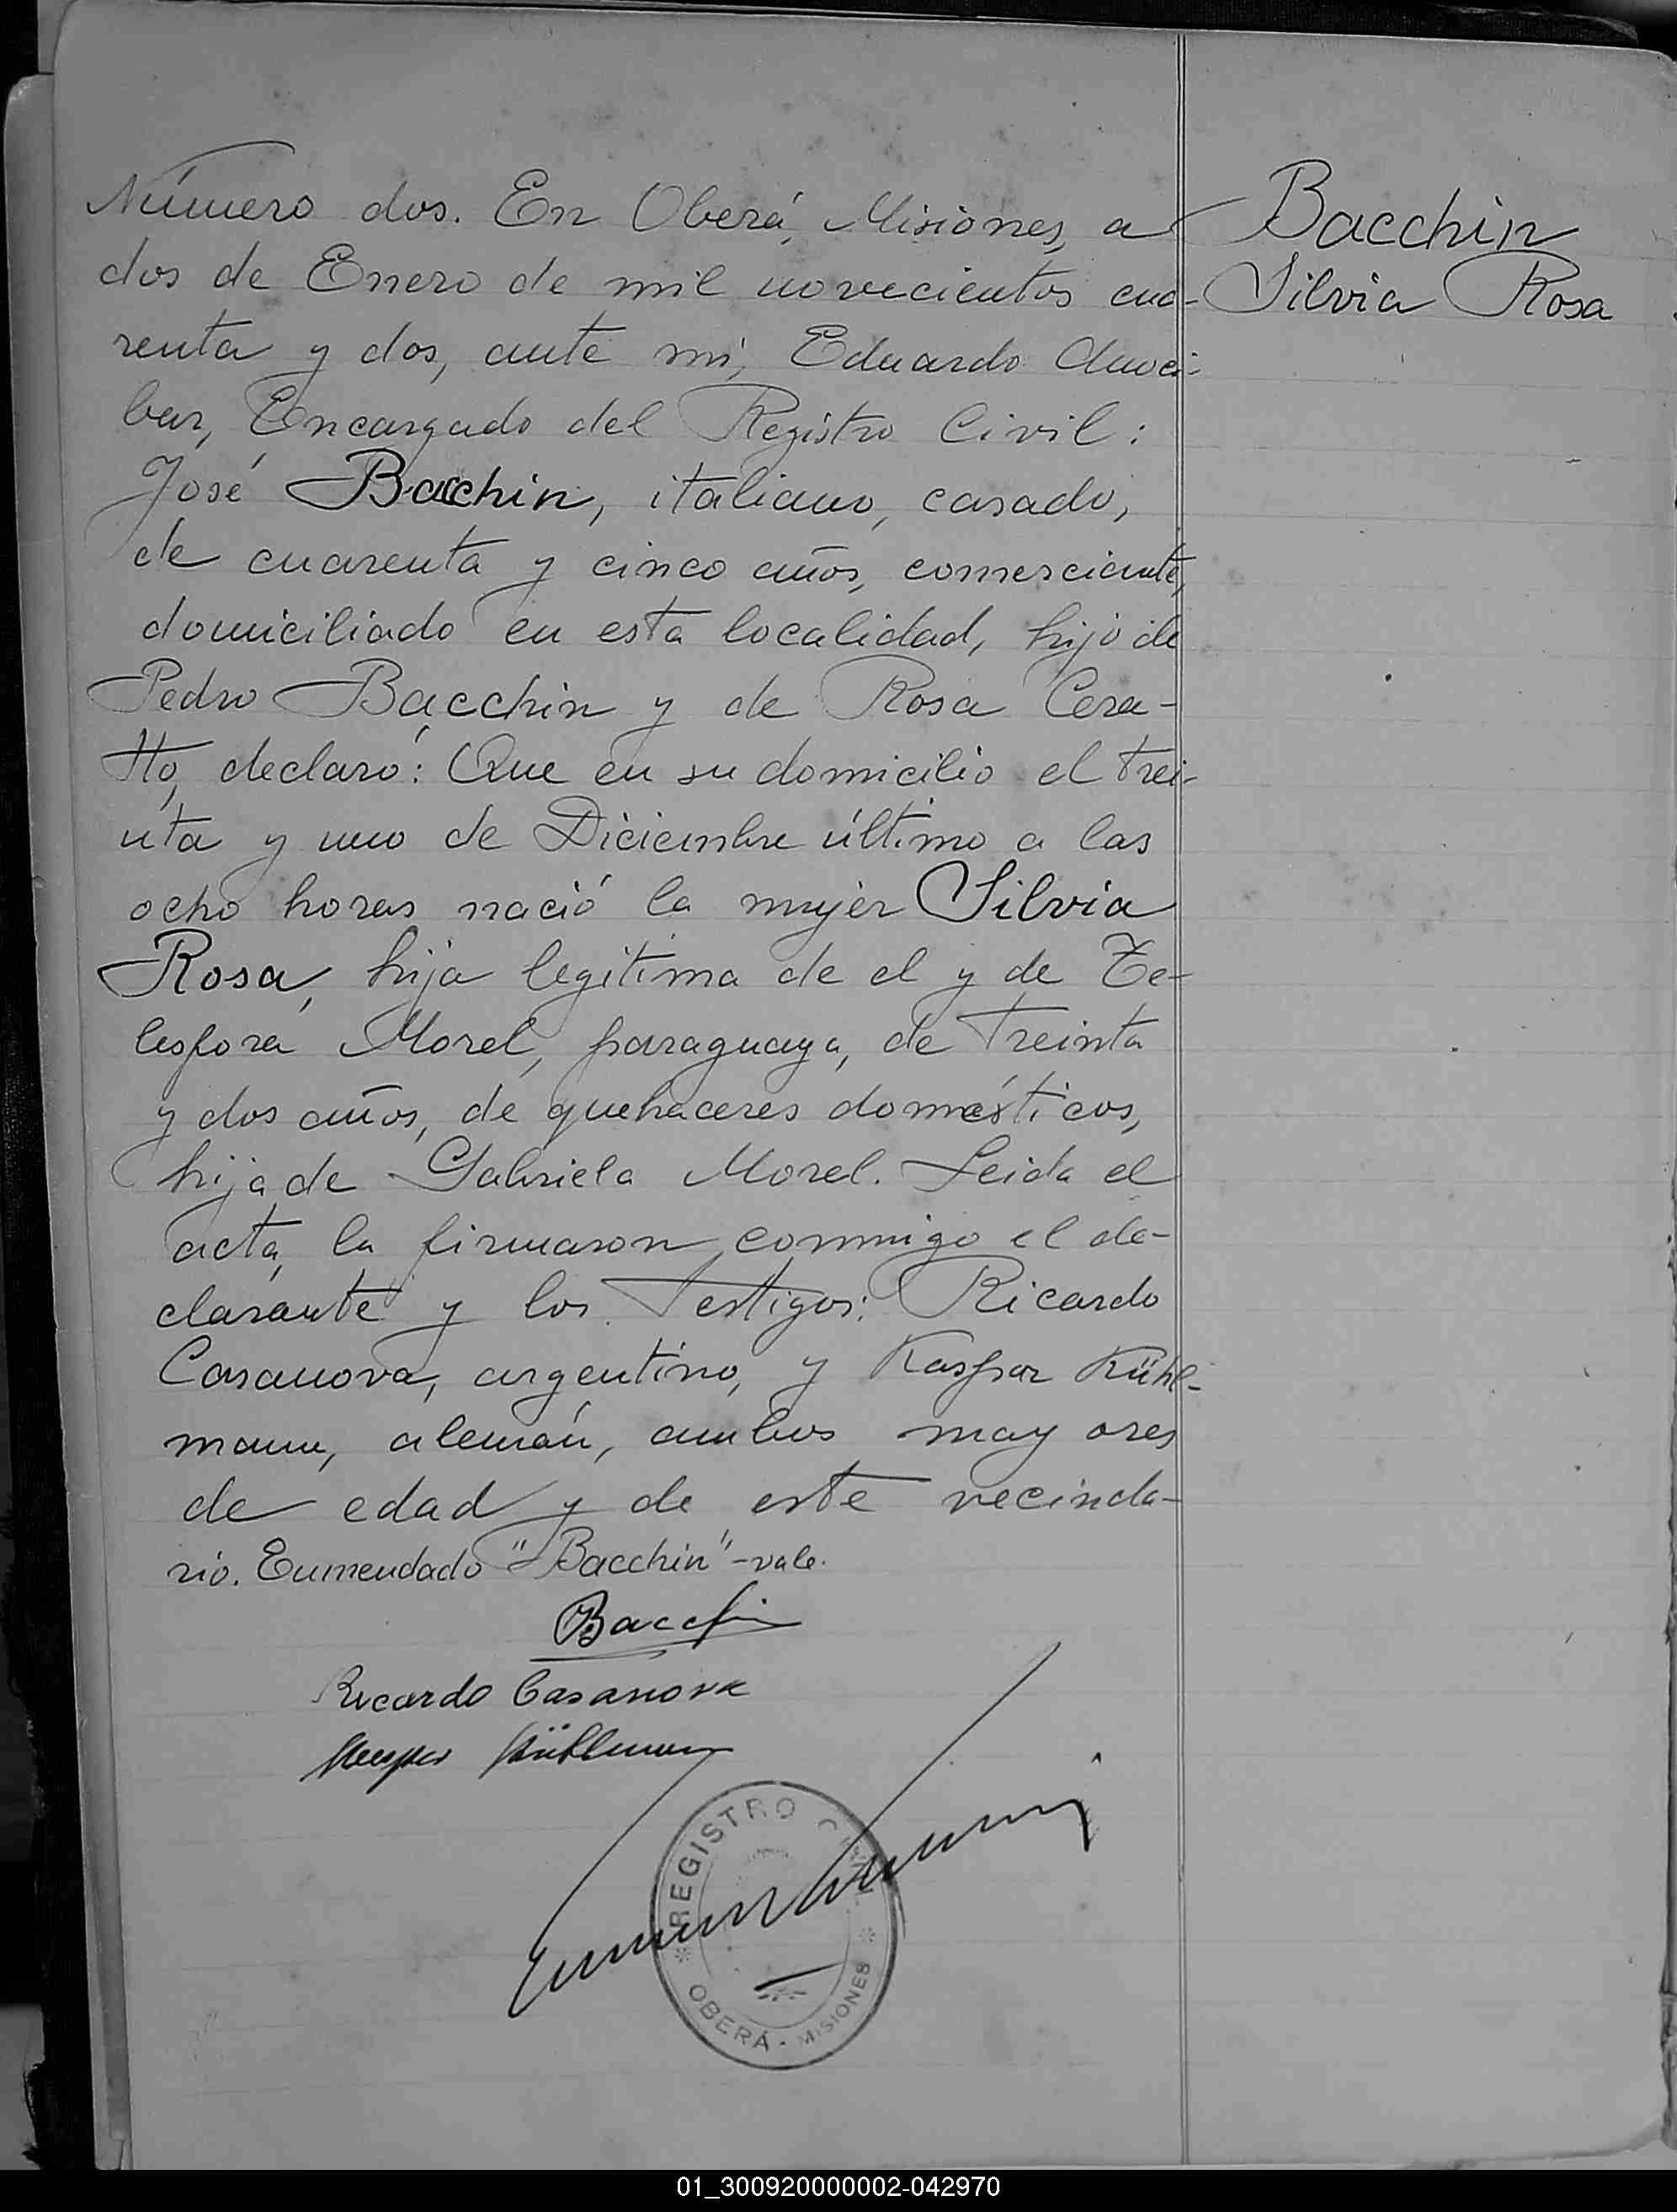 Número dos. En Oberá, Misiones, a
dos de Enero de mil novecientos cua-
renta y dos, ante mi, Eduardo
Encargado del Registro Civil:
José Bacchin, italiano, casado,
de cuarenta y cinco años, comerciante,
domiciliado en esta localidad, hijo de
Pedro Bacchin y de Rosa Cera-
tto, declaró: Que en su domicilio el trei-
nta y uno de Diciembre último a las
ocho horas nació la mujer Silvia
Rosa, hija legítima de el y de Te-
lesfora Morel, paraguaya, de treinta
y dos años, de quehaceres domésticos,
hija de Gabriela Morel. Leida el
acta, la firmaron conmigo el de-
clarante y los testigos: Ricardo
Casanova, argentino, y Kaspar Kühl-
mann, alemán, ambos mayores
de edad y de este vecinda-
rio. Enmendado "Bacchin" -vale.
Bacchin
Ricardo Casanova
Kaspar Kühlmann
REGISTRO CIVIL
OBERÁ - MISIONES
Bacchin
Silvia Rosa
01_300920000002-042970